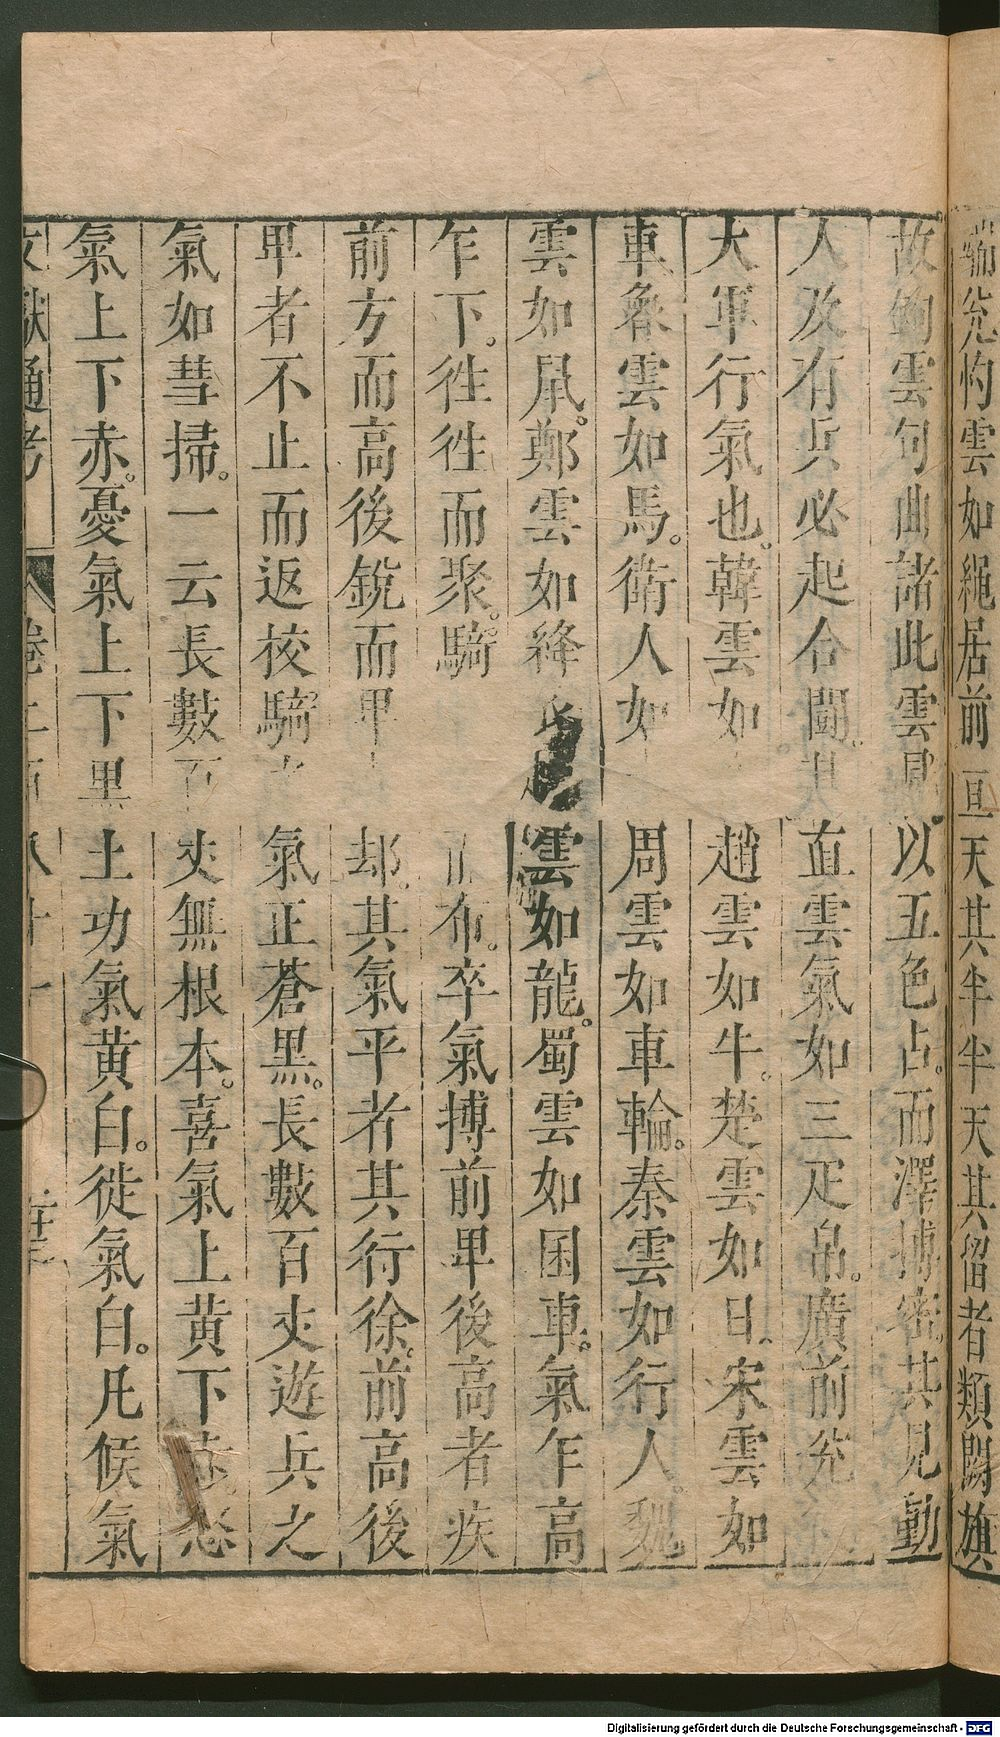 耑兊杓雲如繩居前亘天其半半天其留者類闕旗
故鉤雲句曲諸此雲見以五色占。而澤摶密。其見動
人及有兵必起合鬪。其直雲氣如三疋帛。廣前兊
大軍行氣也。韓雲如趙雲如牛。楚雲如日。宋雲如
車。魯雲如馬。衛人如周雲如車輪。秦雲如行人。魏
雲如鼠。鄭雲如絳雲如龍。蜀雲如囷車。氣乍高
乍下。徃徃而聚。騎布。卒氣摶前卑後高者疾
前方而高後銳而卑却。其氣平者其行徐。前高後
卑者不止而返校騎氣正蒼黑。長數百丈遊兵之
氣如彗掃。一云長數百丈無根本。喜氣上黃下怒
氣上下赤。憂氣上下黑土功氣黃白。徙氣白。凡候氣
文獻通考 卷二百八十一
Digitalisierung gefördert durch die Deutsche Forschungsgemeinschaft - DFG